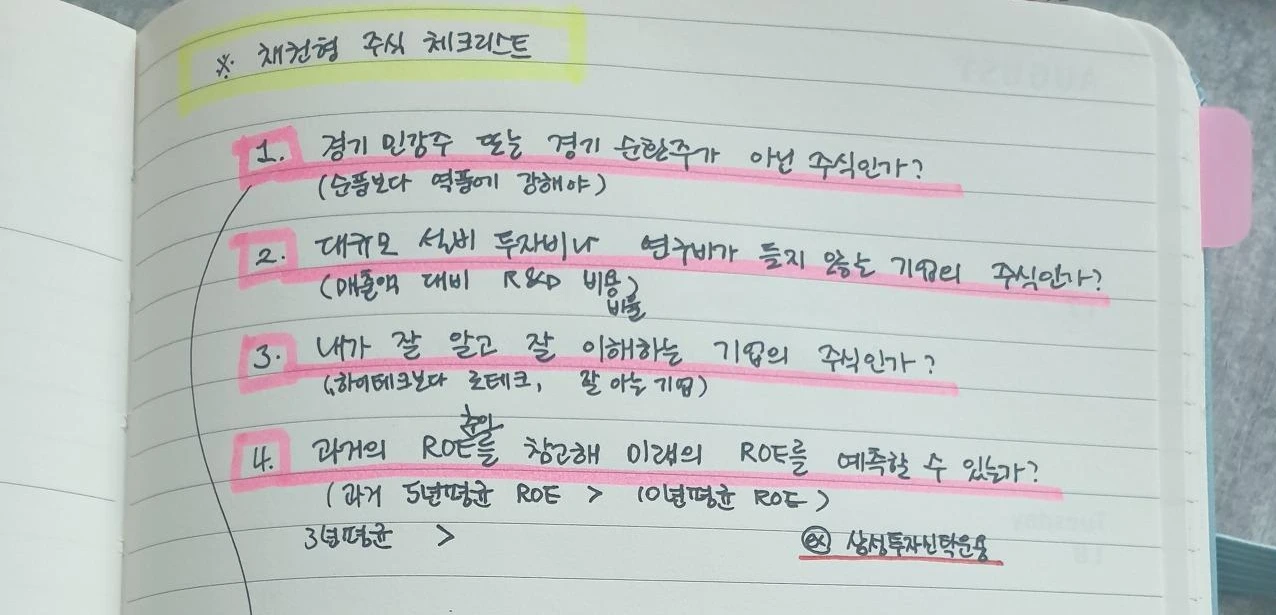 ※ 채권형 주식 체크리스트
1. 경기 민감주 또는 경기 순환주가 아닌 주식인가?
(순풍보다 역풍에 강해야)
2. 대규모 설비 투자비나 연구비가 들지 않는 기업의 주식인가?
(매출액 대비 R&D 비용)
비율
3. 내가 잘 알고 잘 이해하는 기업의 주식인가?
(하이테크보다 로테크, 잘 아는 기업)
4. 과거의 ROE를 참고해 미래의 ROE를 예측할 수 있는가?
(과거 5년평균 ROE > 10년평균 ROE)
3년평균 >
ex 삼성투자신탁운용